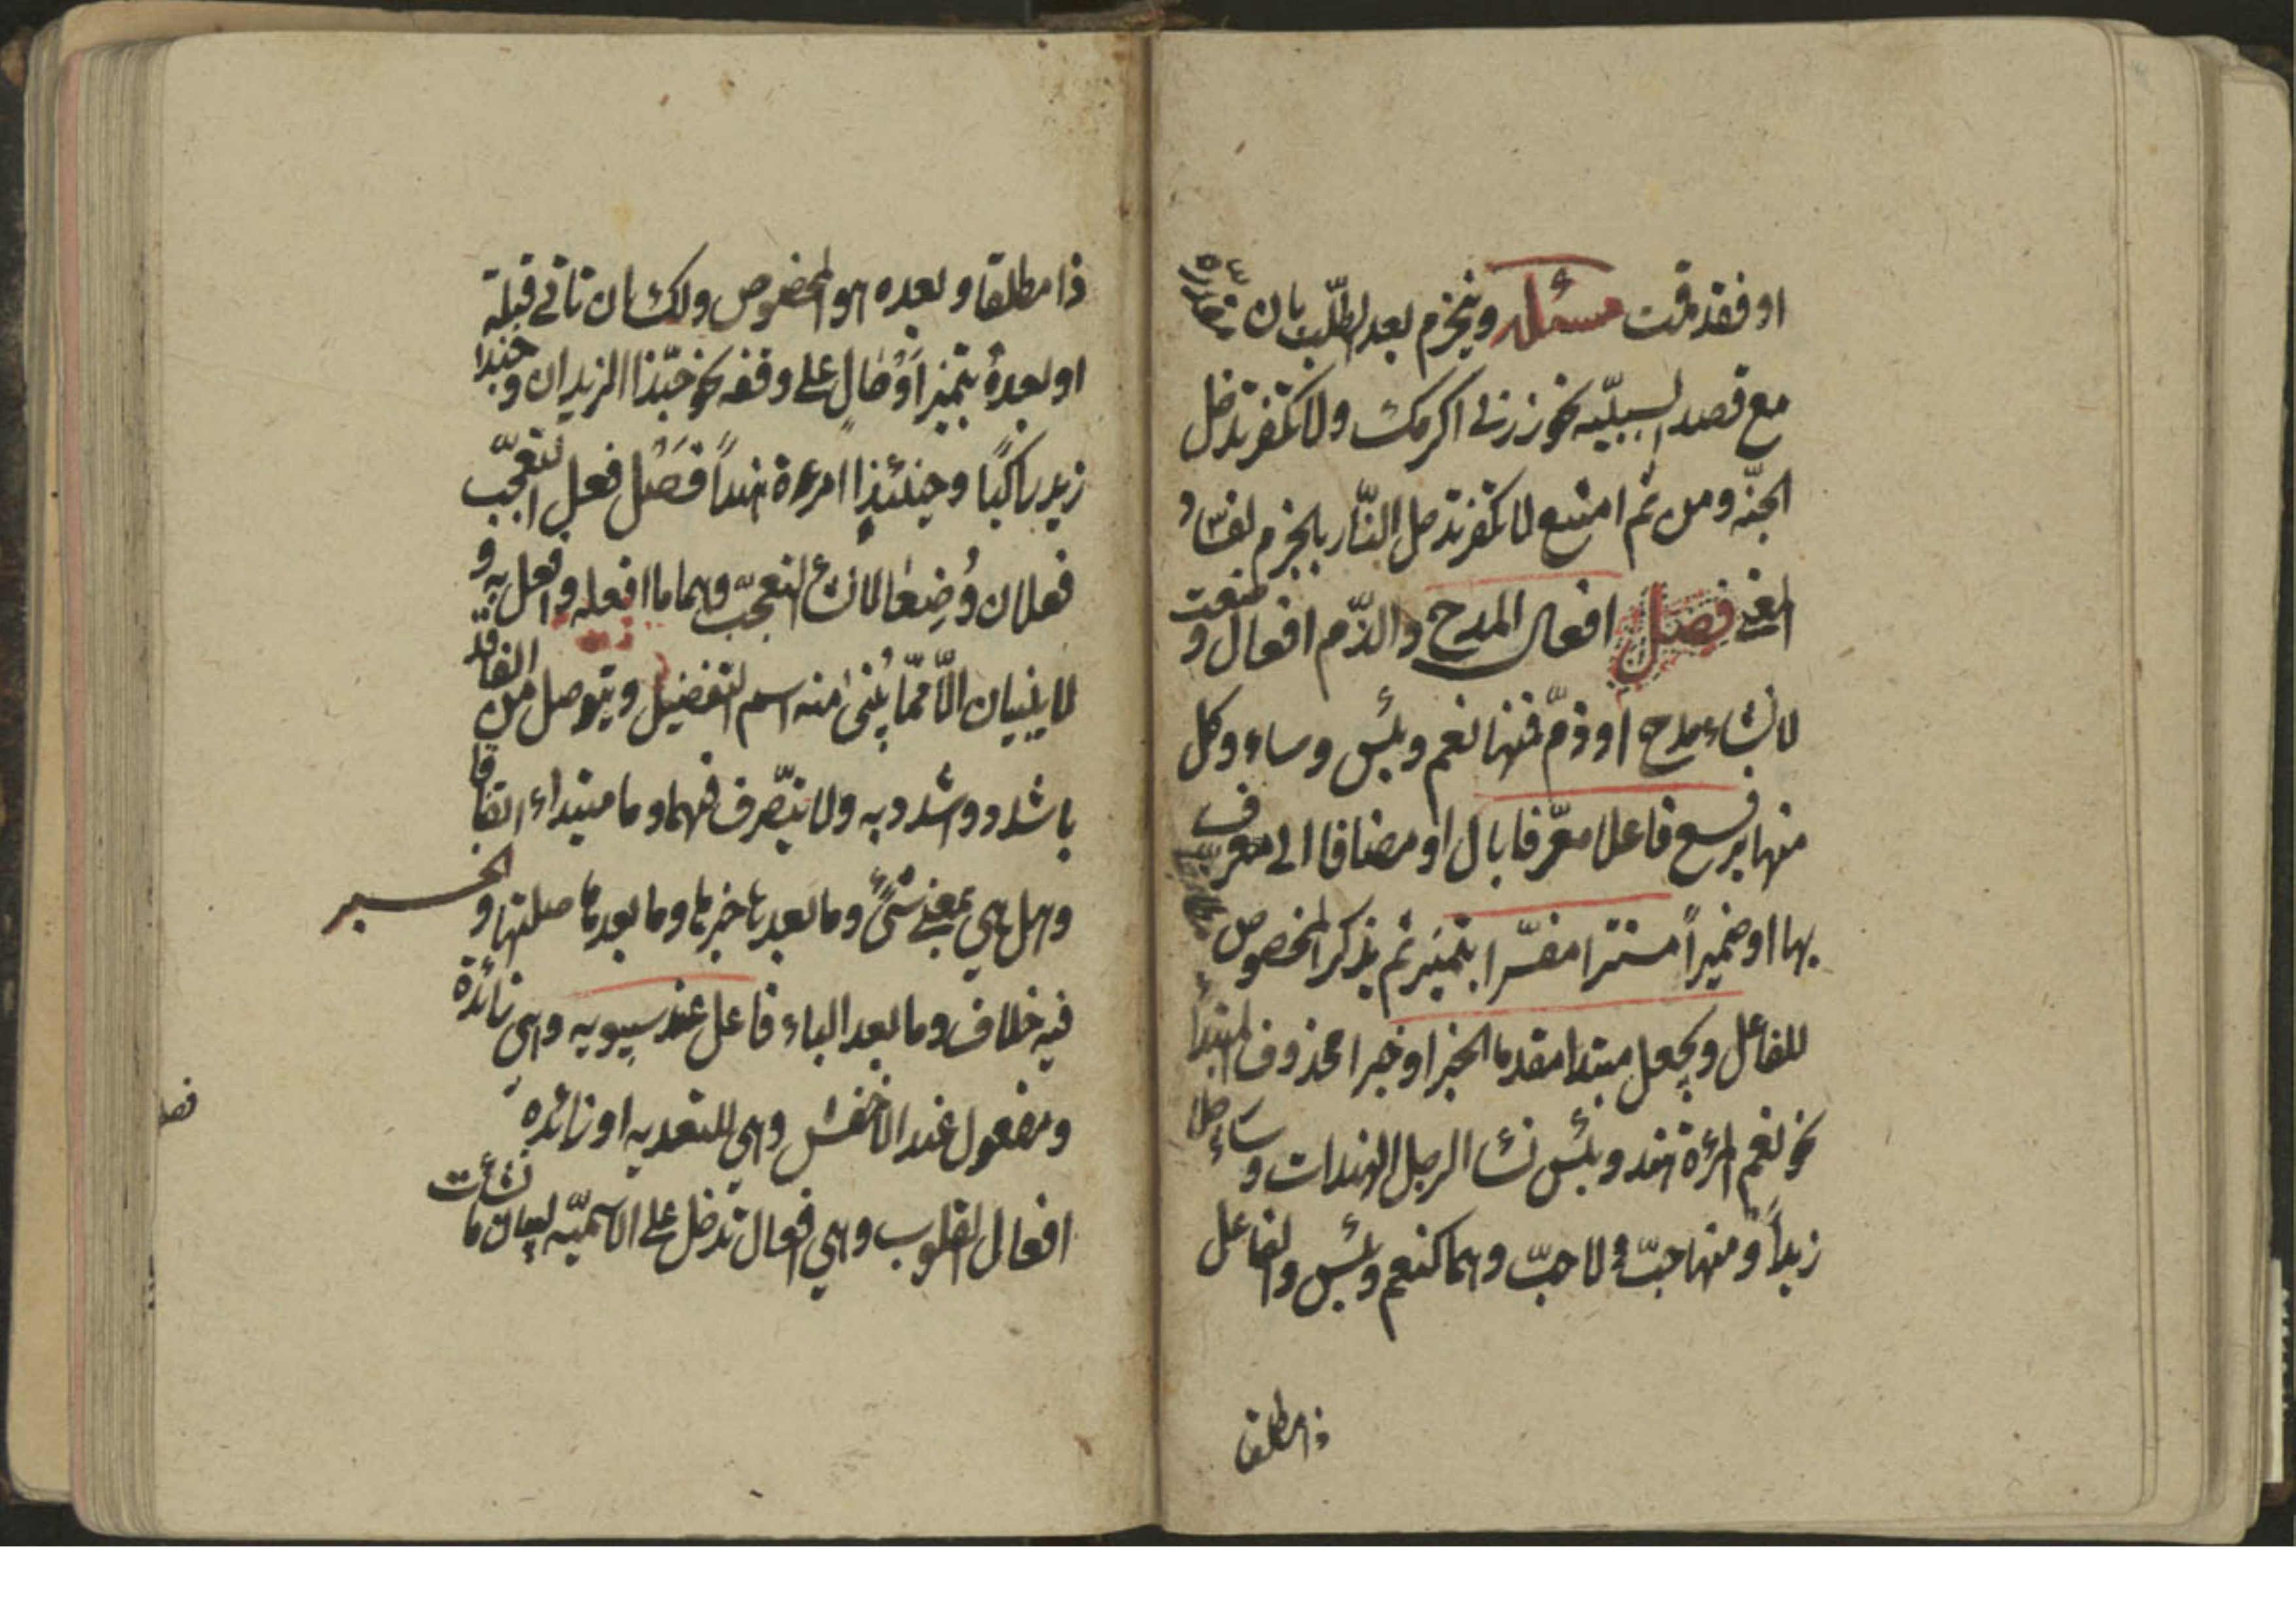 او فقد قمت مسئله وينجزم بعد الطّلب بان
مع قصد السببيّه نحو زرني اكرمك ولا تكفر تدخل
الجنّه ومن ثم امتنع لا تكفر تدخل النّار بالجزم لفساد
المعنى فصل افعال المدح والذّم افعال وضعت
لانشاء مدح او ذمّ فمنها نعم وبئس وساء وكل
منها يرفع فاعلا معرّفا بال او مضافا الى معرف
بها او ضميراً مستترا مفسّرا بتميز ثم يذكر المخصوص
للفاعل ويجعل مبتدا مقدم الخبر او خبرا محذوف المبتدأ
نحو نعم المرءة هند وبئس نساء الرجل الهندات وساء رجلا
زيداً ومنها حبّ ولا حبّ وهما كنعم وبئس والفاعل
ذا مطلقا
ذا مطلقا وبعده هو المخصوص ولك ان تاتي قبله
او بعده بتميز او حال على وفقه نحو حبّذا الزيدان وحبّذا
زيد راكبًا وحبّذا امرءة هنداً فَصْل فعل التعجّب
فعلان وُضِعٰا لانشاء التعجّب وهما ما افعله وافعل به و
لا يبنيان الّا ممّا يُبنى منه اسم التفضيل ويتوصل من الفاقد
باشدد واشدد به ولا يتصّرف فيهما وما مبتداء اتفاقا
وهل هي بمعنى شئ وما بعدها خبرها وما بعدها صلتها والخبر
فيه خلاف وما بعد الباء فاعل عند سيبويه وهي زائدة
ومفعول عند الاخفش وهي للتعديه او زائده
افعال القلوب وهي افعال تدخل على الاسميّه لبيان ما نشأت
فصل